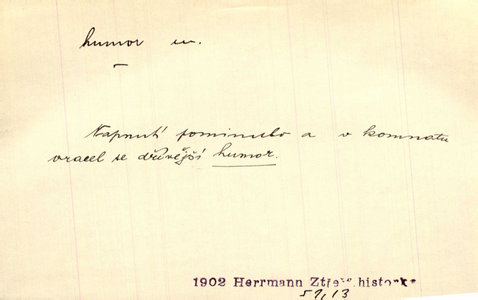 humor m.
Napnutí pominulo a v komnatu
vracel se dřívější humor.
1902 Herrmann Ztřešt. histor
59, 13